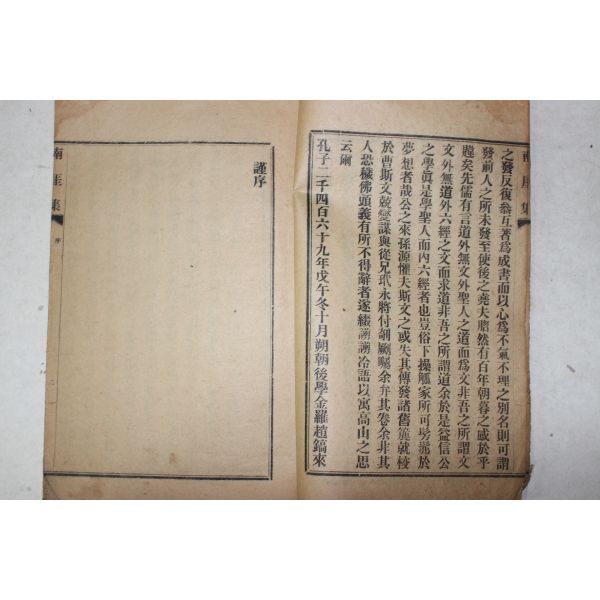 南厓集
之發反復叅互著爲成書而以心爲不氣不理之別名則可謂
發前人之所未發至使後之堯夫膺然有百年朝暮之感於乎
矣先儒有言道外無文外聖人之道而爲文非吾之所謂文
文外無道外六經之文而求道非吾之所謂道余於是益信公
之學眞是學聖人而內六經者也豈俗下操觚家所可髣髴於
夢想者哉公之來孫源懼夫斯文之或失其傳發諸舊篋就校
於曺斯文兢燮謀與從兄玳永將付剞劂囑余弁其卷余非其
人恐穢佛頭義有所不得辭者遂綴謭謭冷語以寓高山之思
云爾
孔子二千四百六十九年戊午冬十月朔朝後學金羅趙鎬來
謹序
南厓集
序